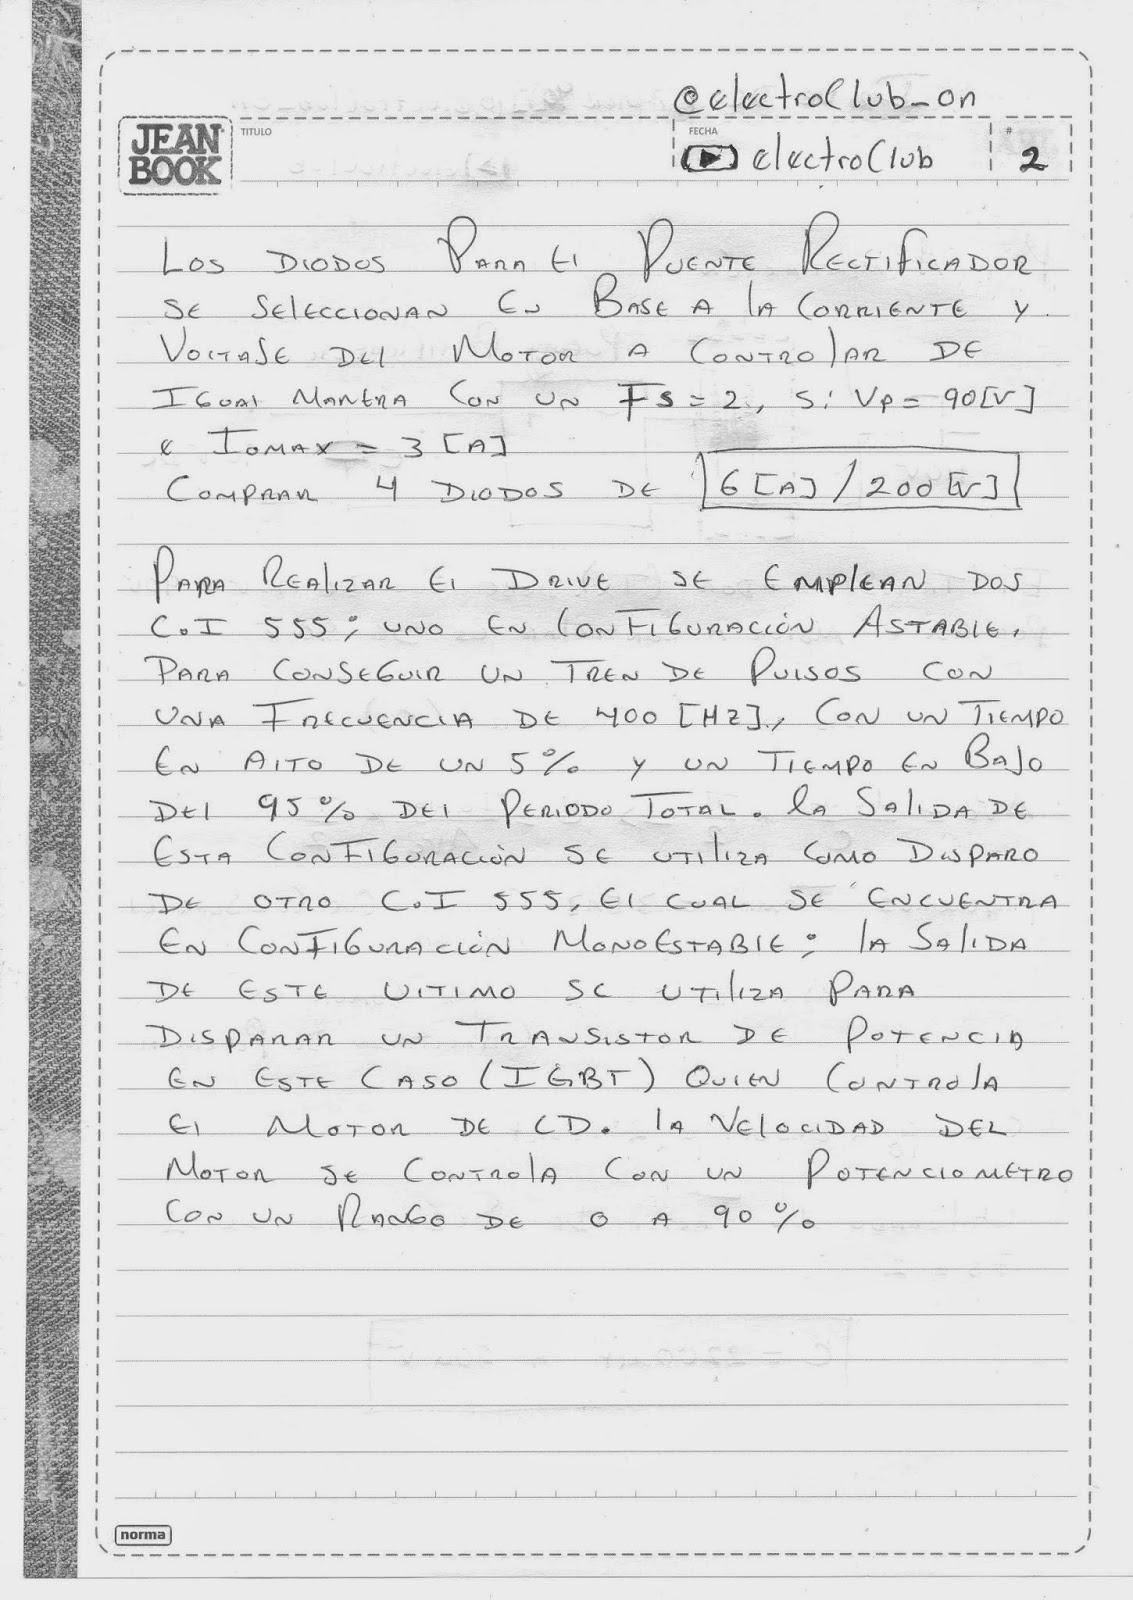 @electroClub_on
JEAN BOOK
TITULO
FECHA
electroClub
#
2
LOS DIODOS PARA El PUENTE RECTIFICADOR
SE SElECCIONAN EN BASE A lA CORRIENTE Y
VOlTAJE DEl MOTOR A CONTROlAR DE
IGUAl MANERA CON UN FS = 2, Si VP = 90 [V]
& IOMAX = 3 [A]
COMPRAR 4 DIODOS DE 6 [A] / 200 [V]
PARA REAlIZAR El DRIVE SE EMPlEAN DOS
C.I 555; UNO EN CONFIGURACIÓN ASTABlE,
PARA CONSEGUIR UN TREN DE PUlSOS CON
UNA FRECUENCIA DE 400 [HZ], CON UN TIEMPO
EN AlTO DE UN 5% Y UN TIEMPO EN BAJO
DEl 95% DEl PERIODO TOTAL. lA SALIDA DE
ESTA CONFIGURACIÓN SE UTILIZA COMO DISPARO
DE OTRO C.I 555, El CUAL SE ENCUENTRA
EN CONFIGURACIÓN MONOESTABlE; lA SALIDA
DE ESTE UlTIMO SE UTILIZA PARA
DISPARAR UN TRANSISTOR DE POTENCIA
EN ESTE CASO (IGBT) QUIEN CONTROlA
El MOTOR DE CD. lA VElOCIDAD DEL
MOTOR SE CONTROlA CON UN POTENCIOMETRO
CON UN RANGO DE 0 A 90%
norma